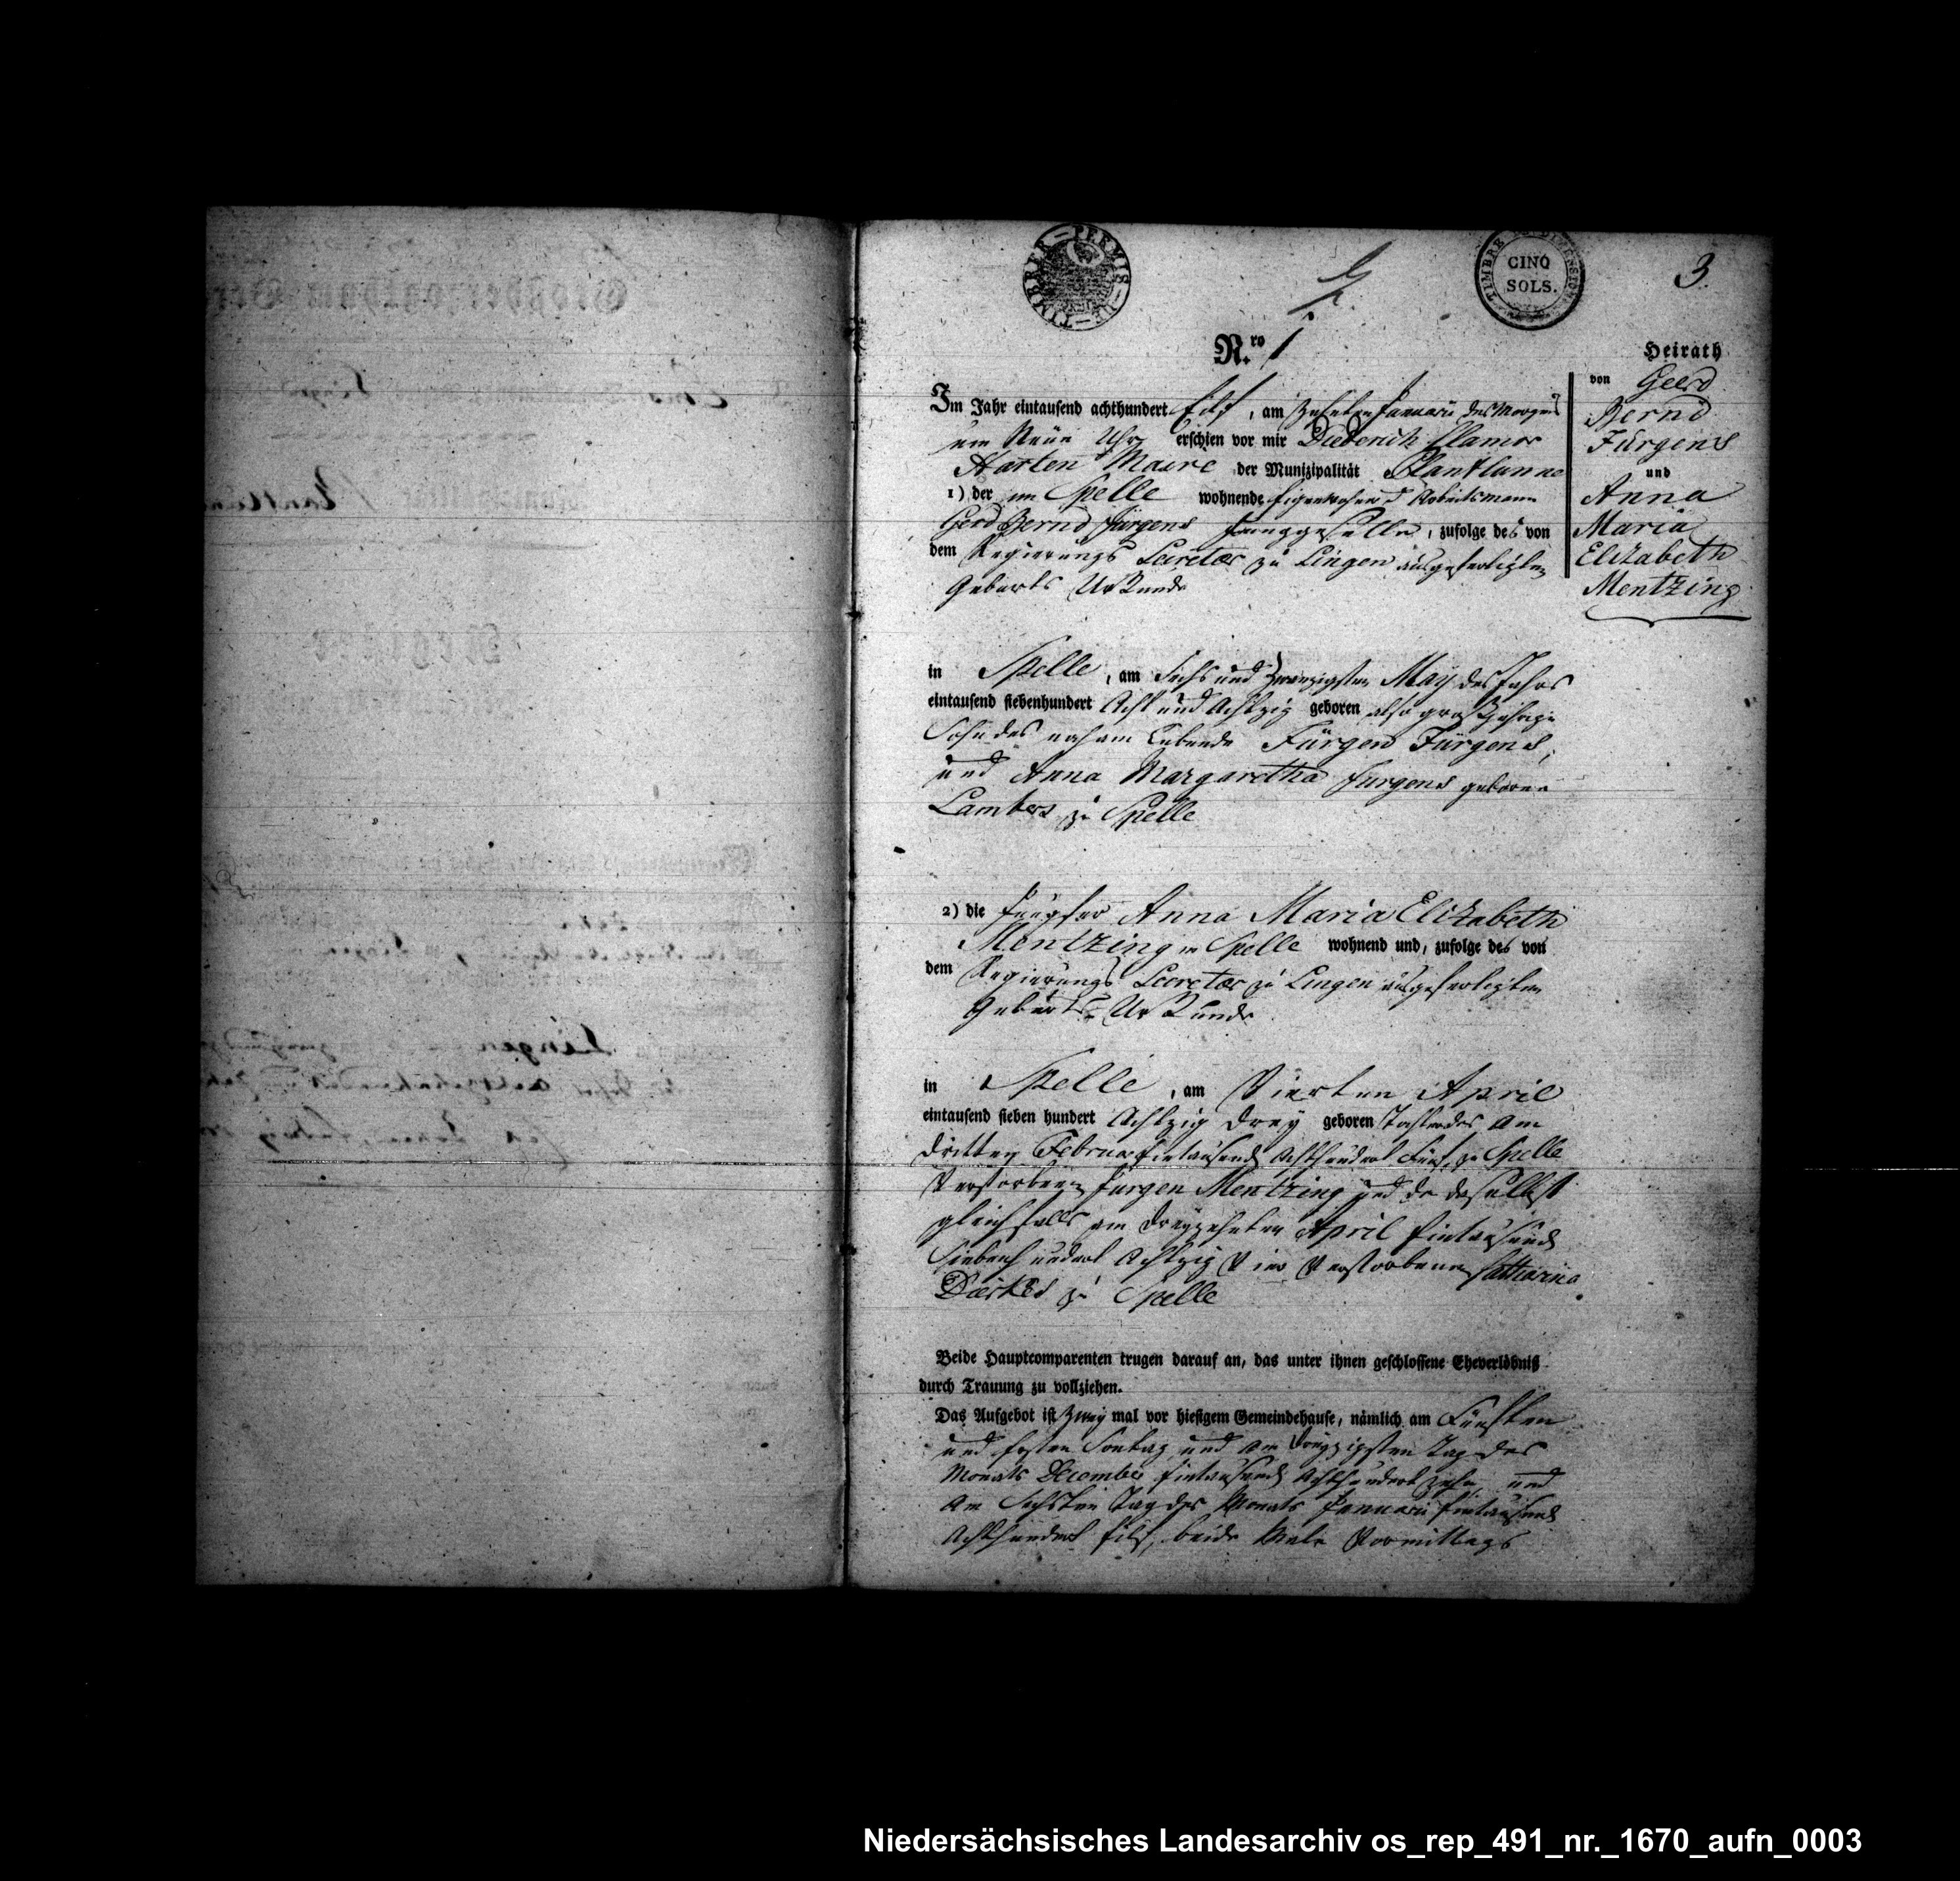 TIMBRER — PERMIS — DE
TIMBRE DE DIMENSION
CINQ
SOLS.
2.
3.
N.ro 1
Heirath
von Geerd
Bernd
Jürgens
und
Anna
Maria
Elizabeth
Mentzing
Im Jahr eintausend achthundert Eilf, am zehnten Januarii des Morgens
um Neün Uhr erschien vor mir Diederich Clamor
Harten Maire der Munizipalität Plantlunne
1) der im Spelle wohnende Arbeitsmann
Gerd Bernd Jürgens Junggeselle, zufolge des von
dem Regierungs Secretar zu Lingen ausgefertigten
Geburts Urkunde
in Spelle, am Sechs und Zwanzigsten May des Jahrs
eintausend siebenhundert Acht und Achtzig geboren also großjährige
Sohn des Lebende Jürgen Jürgens,
und Anna Margaretha Jurgens geboren
Lambers zu Spelle
2) die Jungfer Anna Maria Elizabeth
Mentzing in Spelle wohnend und, zufolge des von
dem Regierungs Secretar zu Lingen ausgefertigten
Geburts-Urkunde
in Spelle, am Vierten April
eintausend sieben hundert Achtzig Drey geboren Tochter des Am
dritten Februar Eintausend Achthundert Fünf, zu Spelle
Verstorbeen Jurgen Mentzing und der daselbst
gleichfalls am Dreyzehnten April Eintausend
Siebenhundert Achtzig Vier Verstorbenen Catharina
Dirkes zu Spelle
Beide Hauptcomparenten trugen darauf an, das unter ihnen geschlossene Eheverlöbniß
durch Trauung zu vollziehen.
Das Aufgebot ist Zwey mal vor hiesigem Gemeindehause, nämlich am Fünften
und Ersten Sontag und Am Dreyzigsten Tag des
Monats December Eintausend Achthundert zehn, und
Am Sechsten Tag des Monats Januarii Eintausend
Achthundert Eilf, beide Male Vormittags
Niedersächsisches Landesarchiv os_rep_491_nr._1670_aufn_0003